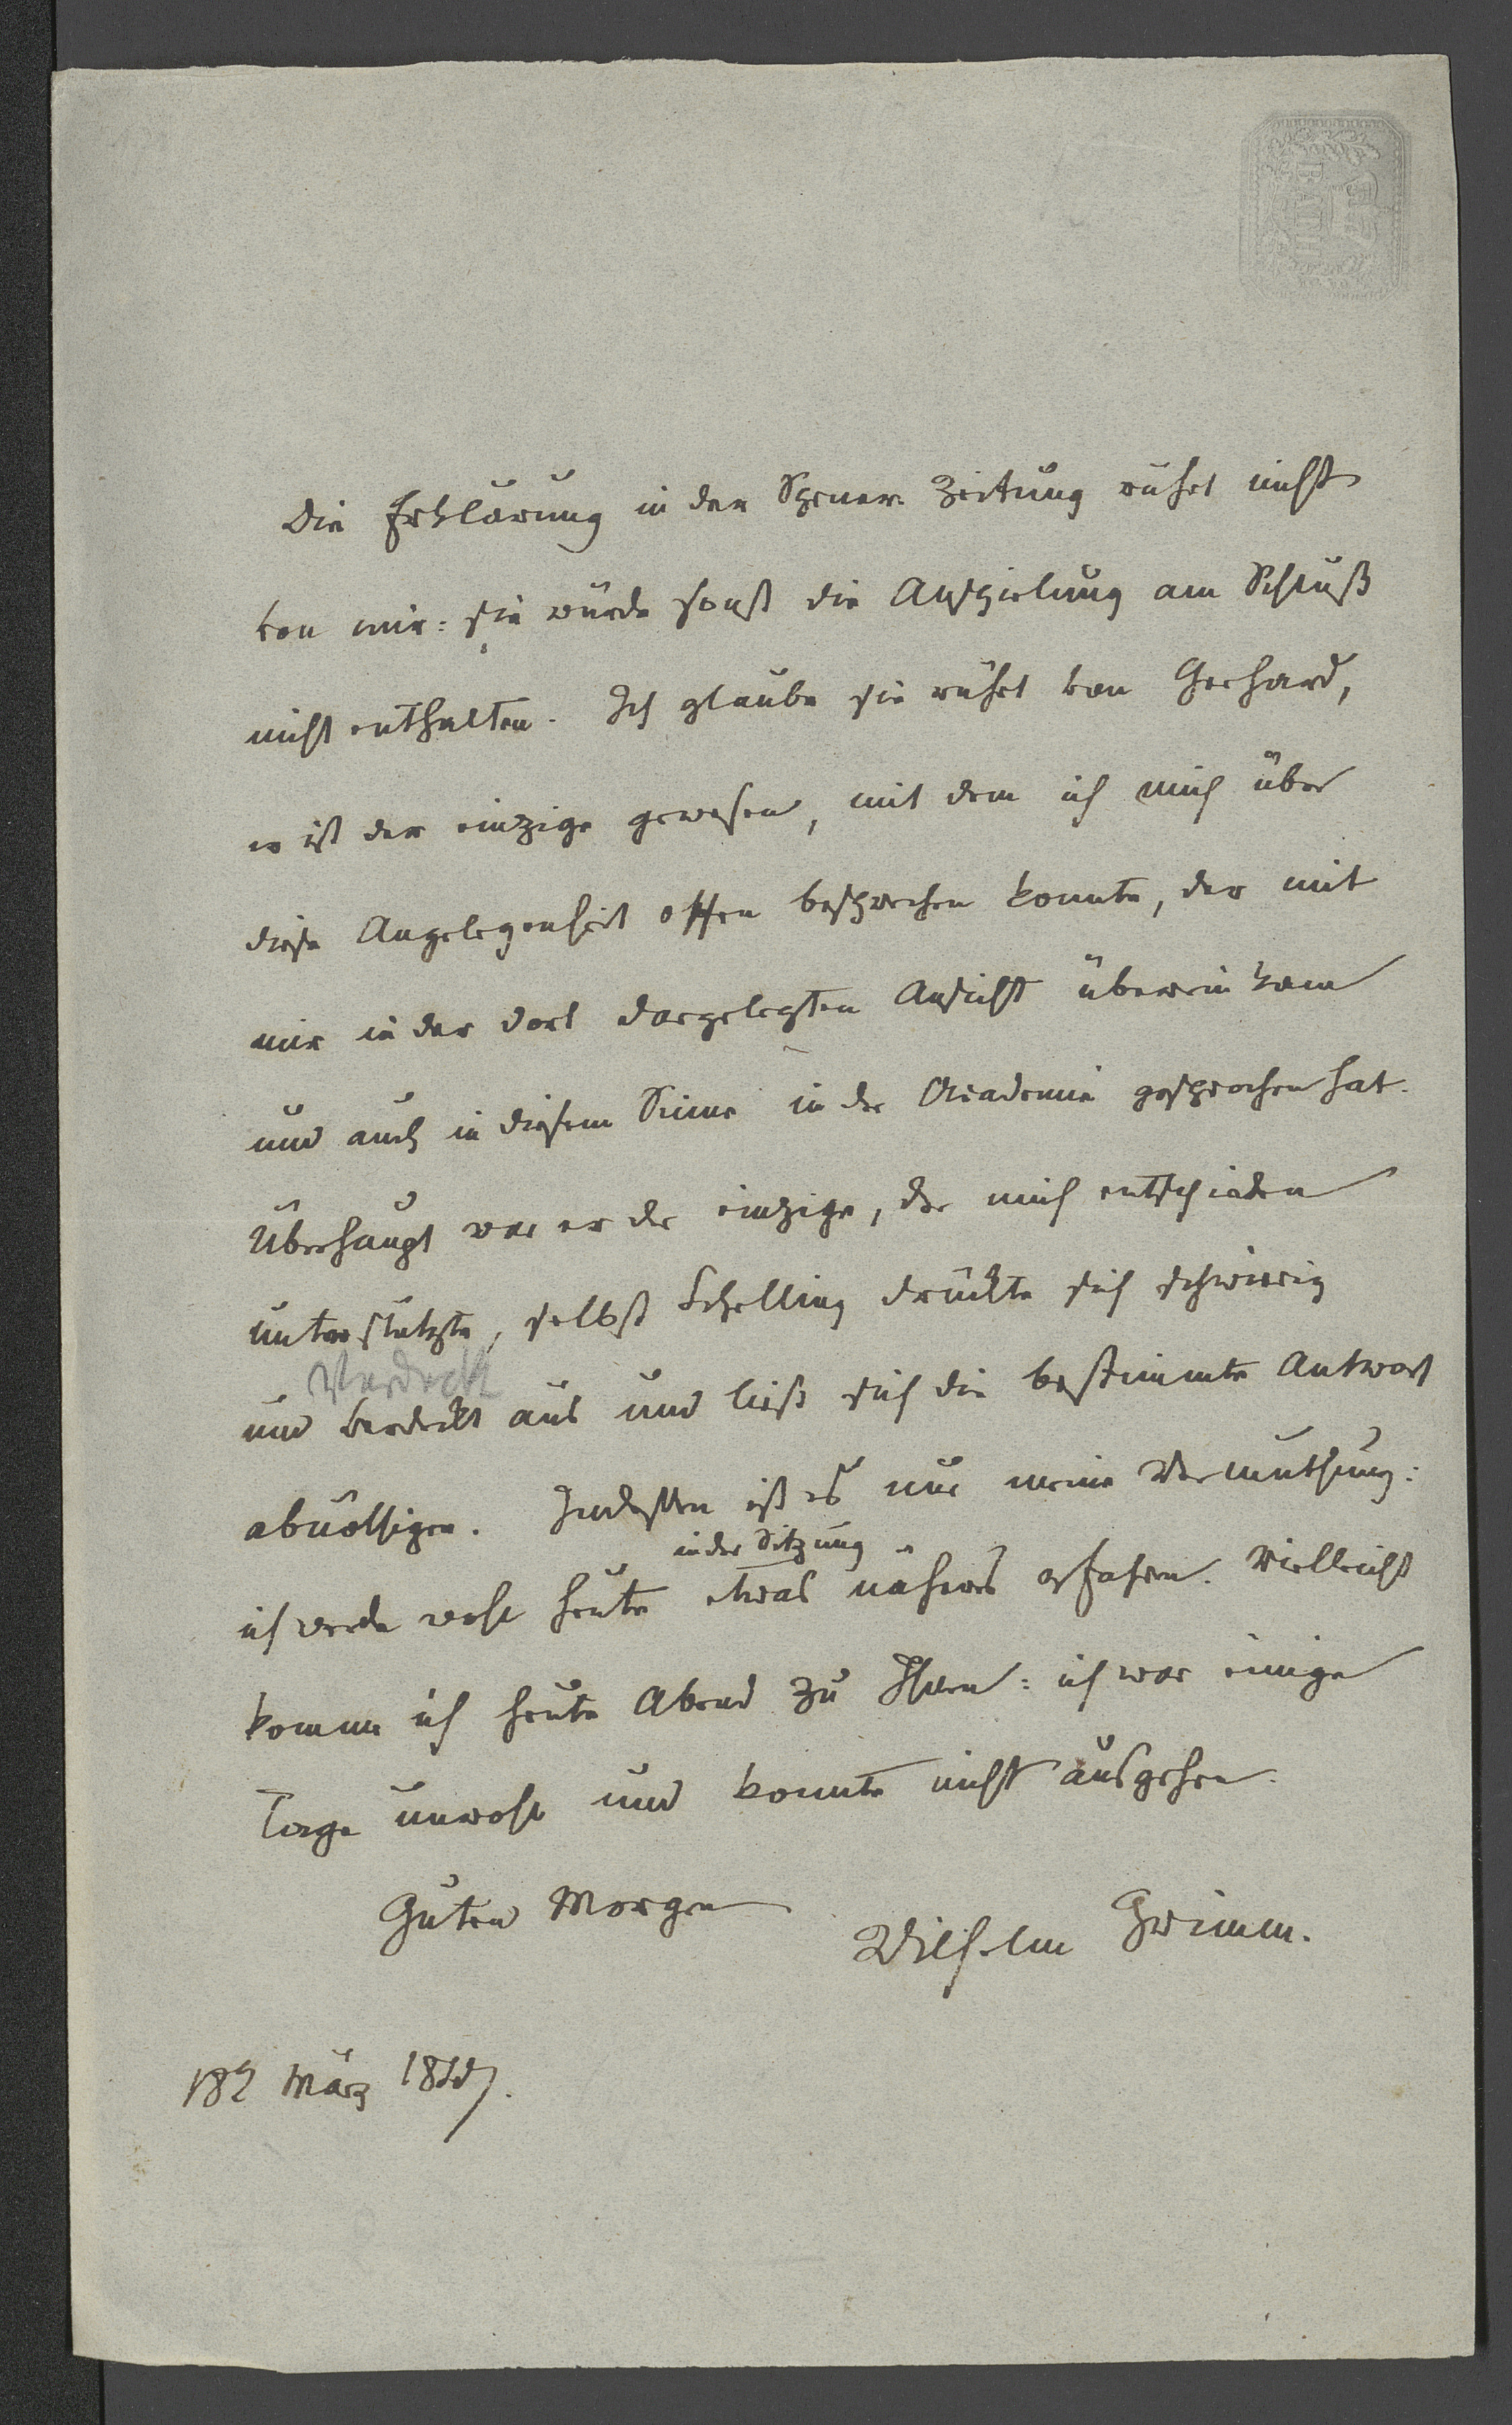 BATH
Die Erklärung in der Spener. Zeitung rührt nicht
von mir: sie würde sonst die Anspielung am Schluß
nicht enthalten. Ich glaube sie rührt von Gerhard,
er ist der einzige gewesen, mit dem ich mich über
diese Angelegenheit offen besprechen konnte, der mit
mir in der dort dargelegten Ansicht übereinkam
und auch in diesem Sinne in der Academie gesprochen hat.
Überhaupt war er der einzige, der mich entschieden
unterstützte, selbst Schelling drückte sich schwierig
Verdeckt
und verdeckt aus und ließ sich die bestimmte Antwort
abnöthigen. Indessen ist es nur meine Vermuthung:
in der Sitzung
ich werde wohl heute etwas näheres erfahren. Vielleicht
komme ich heute Abend zu Ihnen: ich war einige
Tage unwohl und konnte nicht ausgehen.
Guten Morgen
Wilhelm Grimm.
18t März 1847.